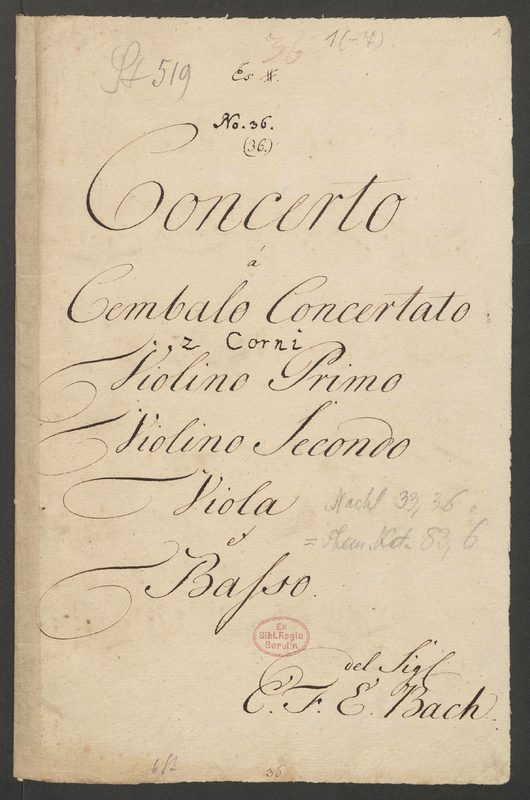 36 1(-4)
1
St 519
Es #.
No. 36.
(36.)
Concerto
á
Cembalo Concertato
2 Corni
Violino Primo
Violino Secondo
Viola
Nachl 33, 36
et
= Them. Kat. 83, 6
Basso.
Ex
Bibl. Regia
Berolin.
del Sigl
C. F. E. Bach.
36